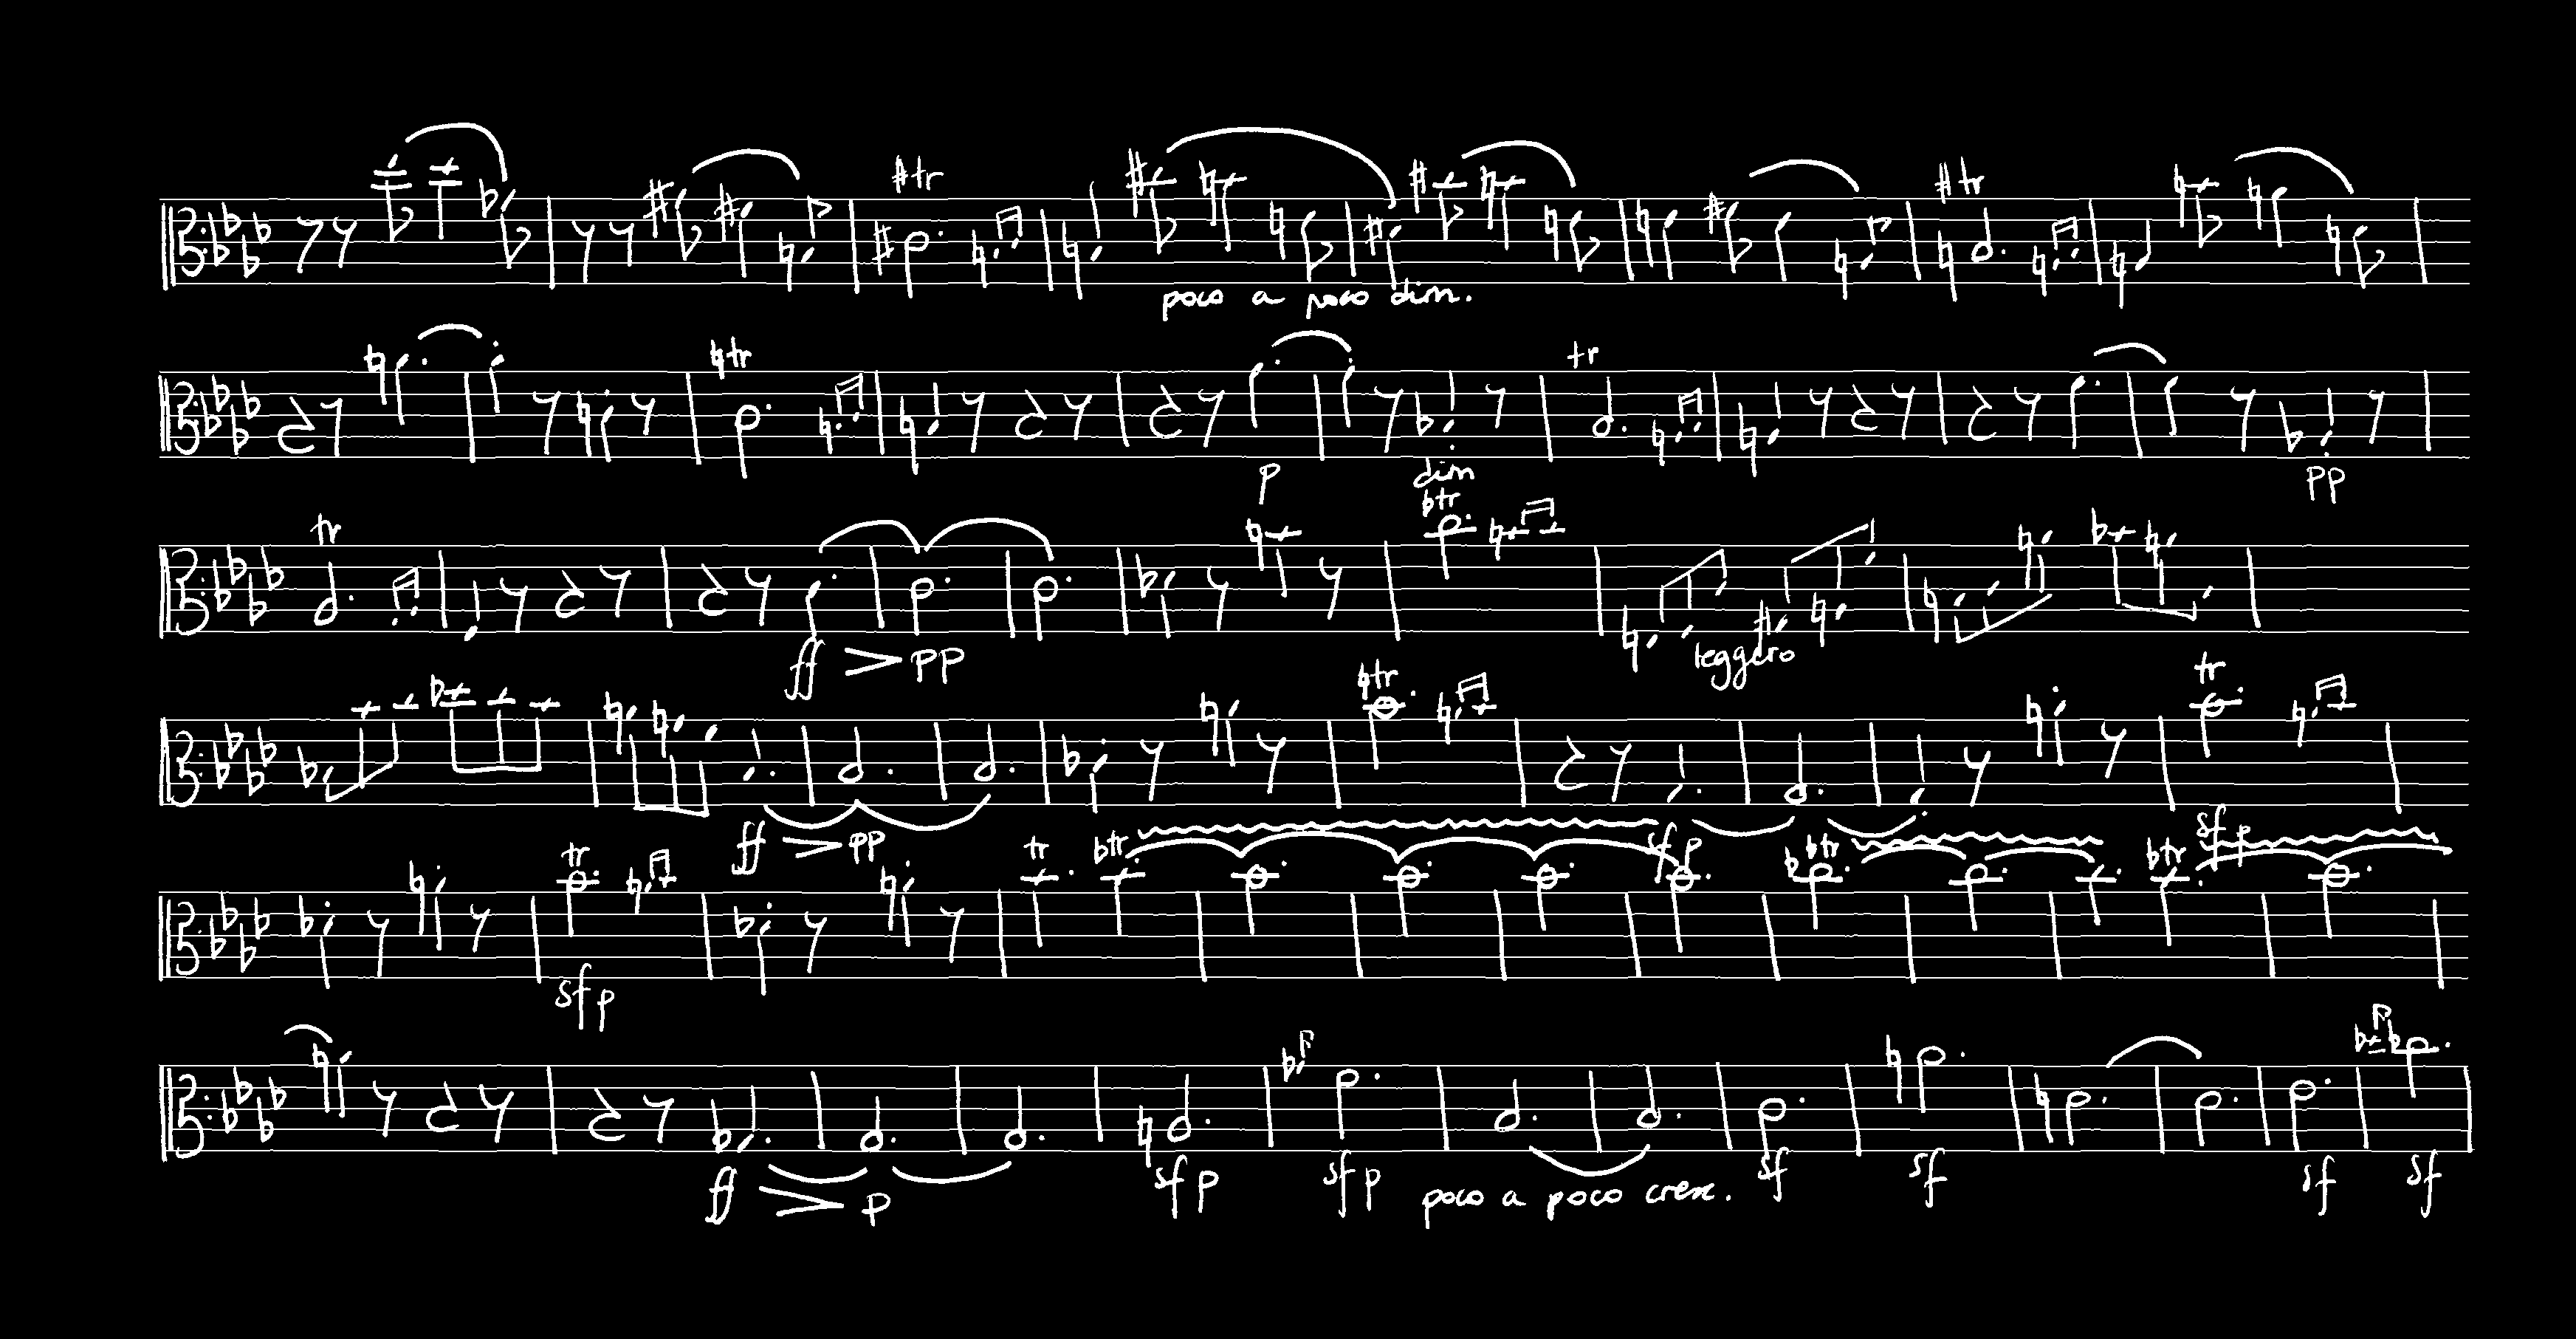 tr tr
poco a poco dim.
tr tr
p dim pp
tr tr
ff pp leggero
tr tr
ff pp sfp sfp
tr tr tr tr tr
sfp
ff p sfp sfp poco a poco cresc. sf sf sf sf